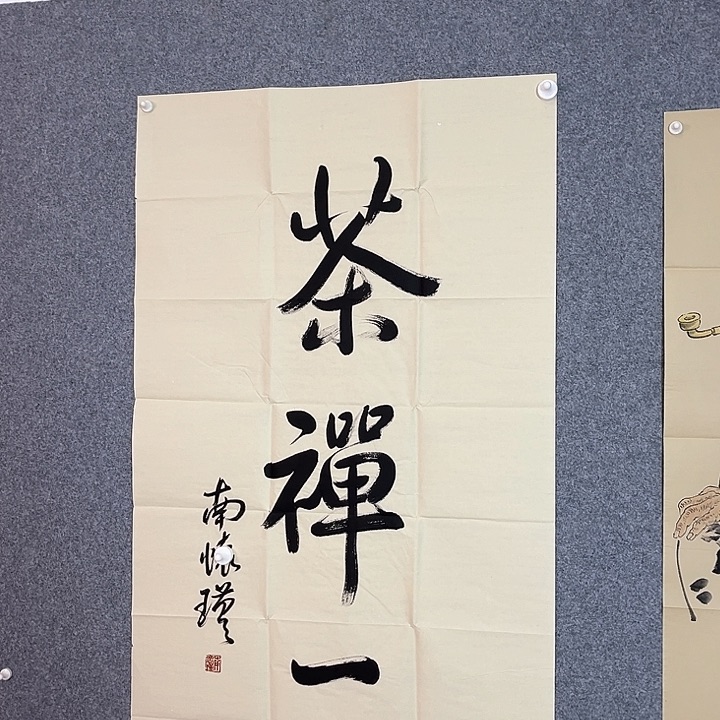 茶禪一
南懷瑾